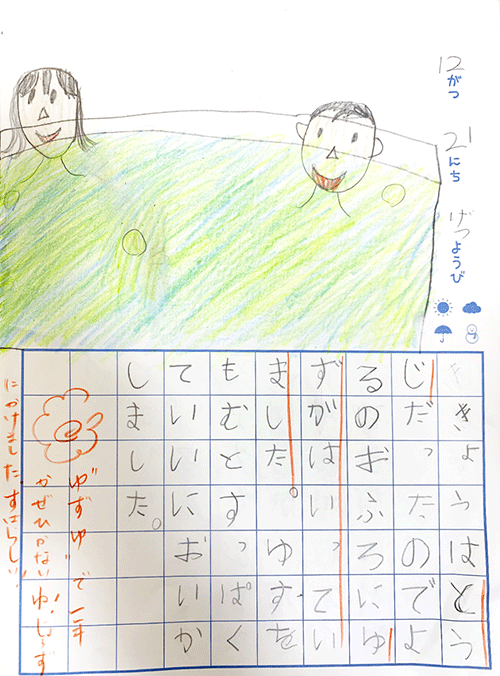 12がつ
21にち
げつようび
きょうはとう
じだったのでよ
るのおふろにゆ
ずがはいってい
ました。ゆずを
もむとすっぱく
ていいにおいか
しました。
"ゆずゆ"で一年
かぜひかない
にかけました すばらしい!